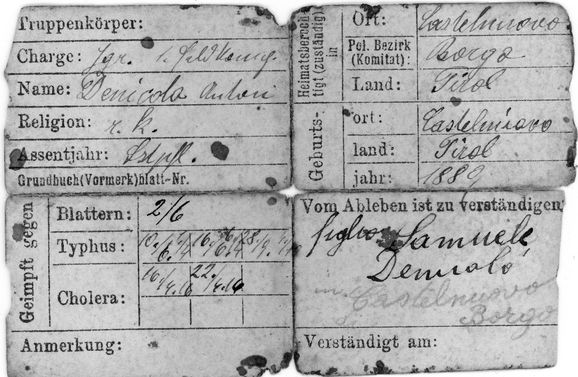 Truppenkörper:
Charge: Jgr. 1. Feldkomp.
Name: Denicolo Anton
Religion: r. k.
Assentjahr: Lstpfl.
Grundbuch(Vormerk)blatt-Nr.
Heimatsberech-
tigt (zuständig)
in
Ort: Castelnuovo
Pol. Bezirk
(Komitat): Borgo
Land: Tirol
Geburts-
ort: Castelnuovo
land: Tirol
jahr: 1889
Geimpft gegen
Blattern: 2/6
Typhus:
Cholera:
Anmerkung:
Vom Ableben ist zu verständigen
figlio Samuele
Denicoló
in Castelnuovo
Borgo
Verständigt am: